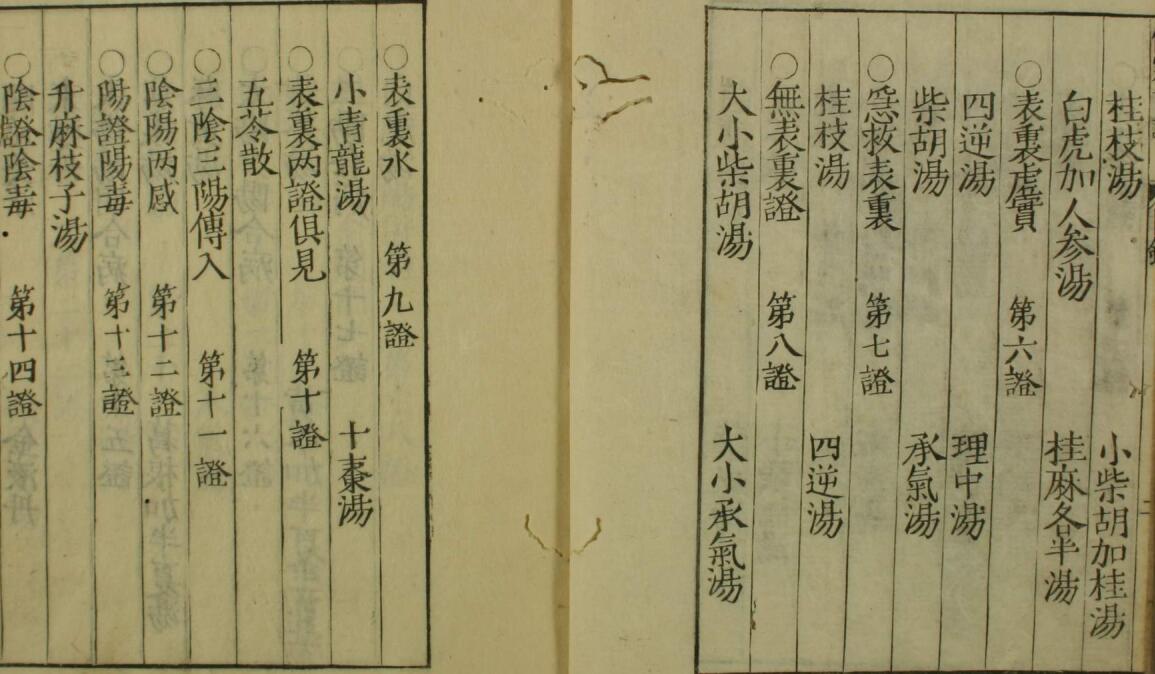 桂枝湯 小柴胡加桂湯
白虎加人参湯 桂麻各半湯
○表裏虛實 第六證
四逆湯 理中湯
柴胡湯 承氣湯
○急救表裏 第七證
桂枝湯 四逆湯
○無表裏證 第八證
大小柴胡湯 大小承氣湯
○表裏水 第九證
小青龍湯 十棗湯
○表裏两證俱見 第十證
五苓散
○三陰三陽傳入 第十一證
○陰陽两感 第十二證
○陽證陽毒 第十三證
升麻枝子湯
○陰證陰毒 第十四證